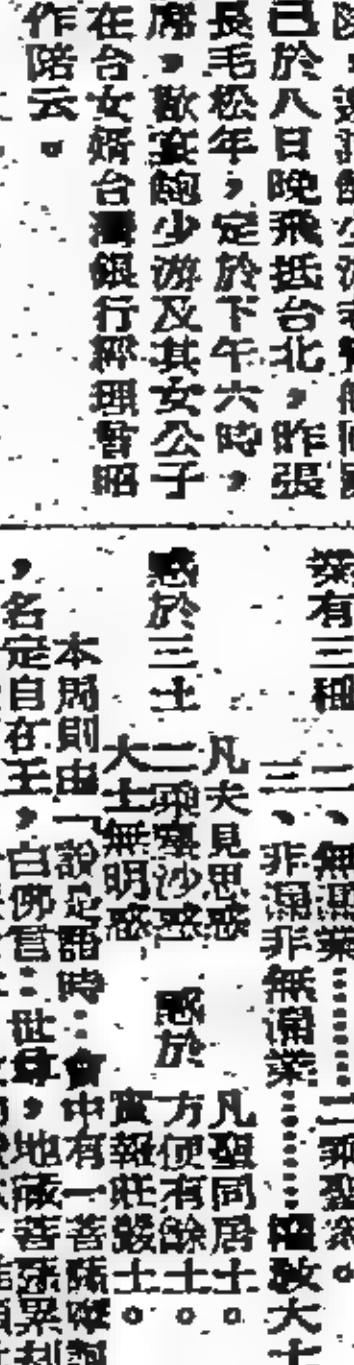 已於八日晚飛抵台北，昨張
長毛松年，定於下午六時，
席，歡宴鮑少游及其女公子
在台女婿台灣銀行經理曾昭
作陪云。
業有三種
二、無漏業……二乘聖眾。
三、非漏非無漏業……隨教大士
惑於三土
凡夫見思惑
二乘塵沙惑
大士無明惑
惑於
凡聖同居土。
方便有餘土。
實報莊嚴土。
本周則由「說是語時：會中有一菩薩
，名定自在王，白佛言：世尊，地藏菩薩累劫